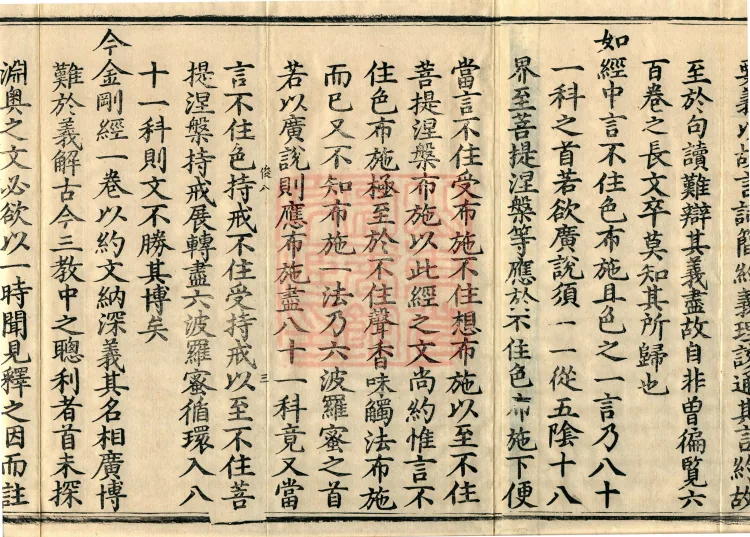 要義以故言詞簡約義理該通其言約故
至於句讀難辯其義盡故自非曾徧覽六
百卷之長文卒莫知其所歸也
如經中言不住色布施且色之一言乃八十
一科之首若欲廣說須一一從五陰十八
界至菩提涅槃等應於不住色布施下便
當言不住受布施不住想布施以至不住
菩提涅槃布施以此經之文尚約惟言不
住色布施極至於不住聲香味觸法布施
而已又不知布施一法乃六波羅蜜之首
若以廣說則應布施盡八十一科竟又當
俊八
三
言不住色持戒不住受持戒以至不住菩
提涅槃持戒展轉盡六波羅蜜循環入八
十一科則文不勝其博矣
今金剛經一卷以約文納深義其名相廣博
難於義解古今三教中之聰利者首未探
淵奧之文必欲以一時聞見釋之因而註